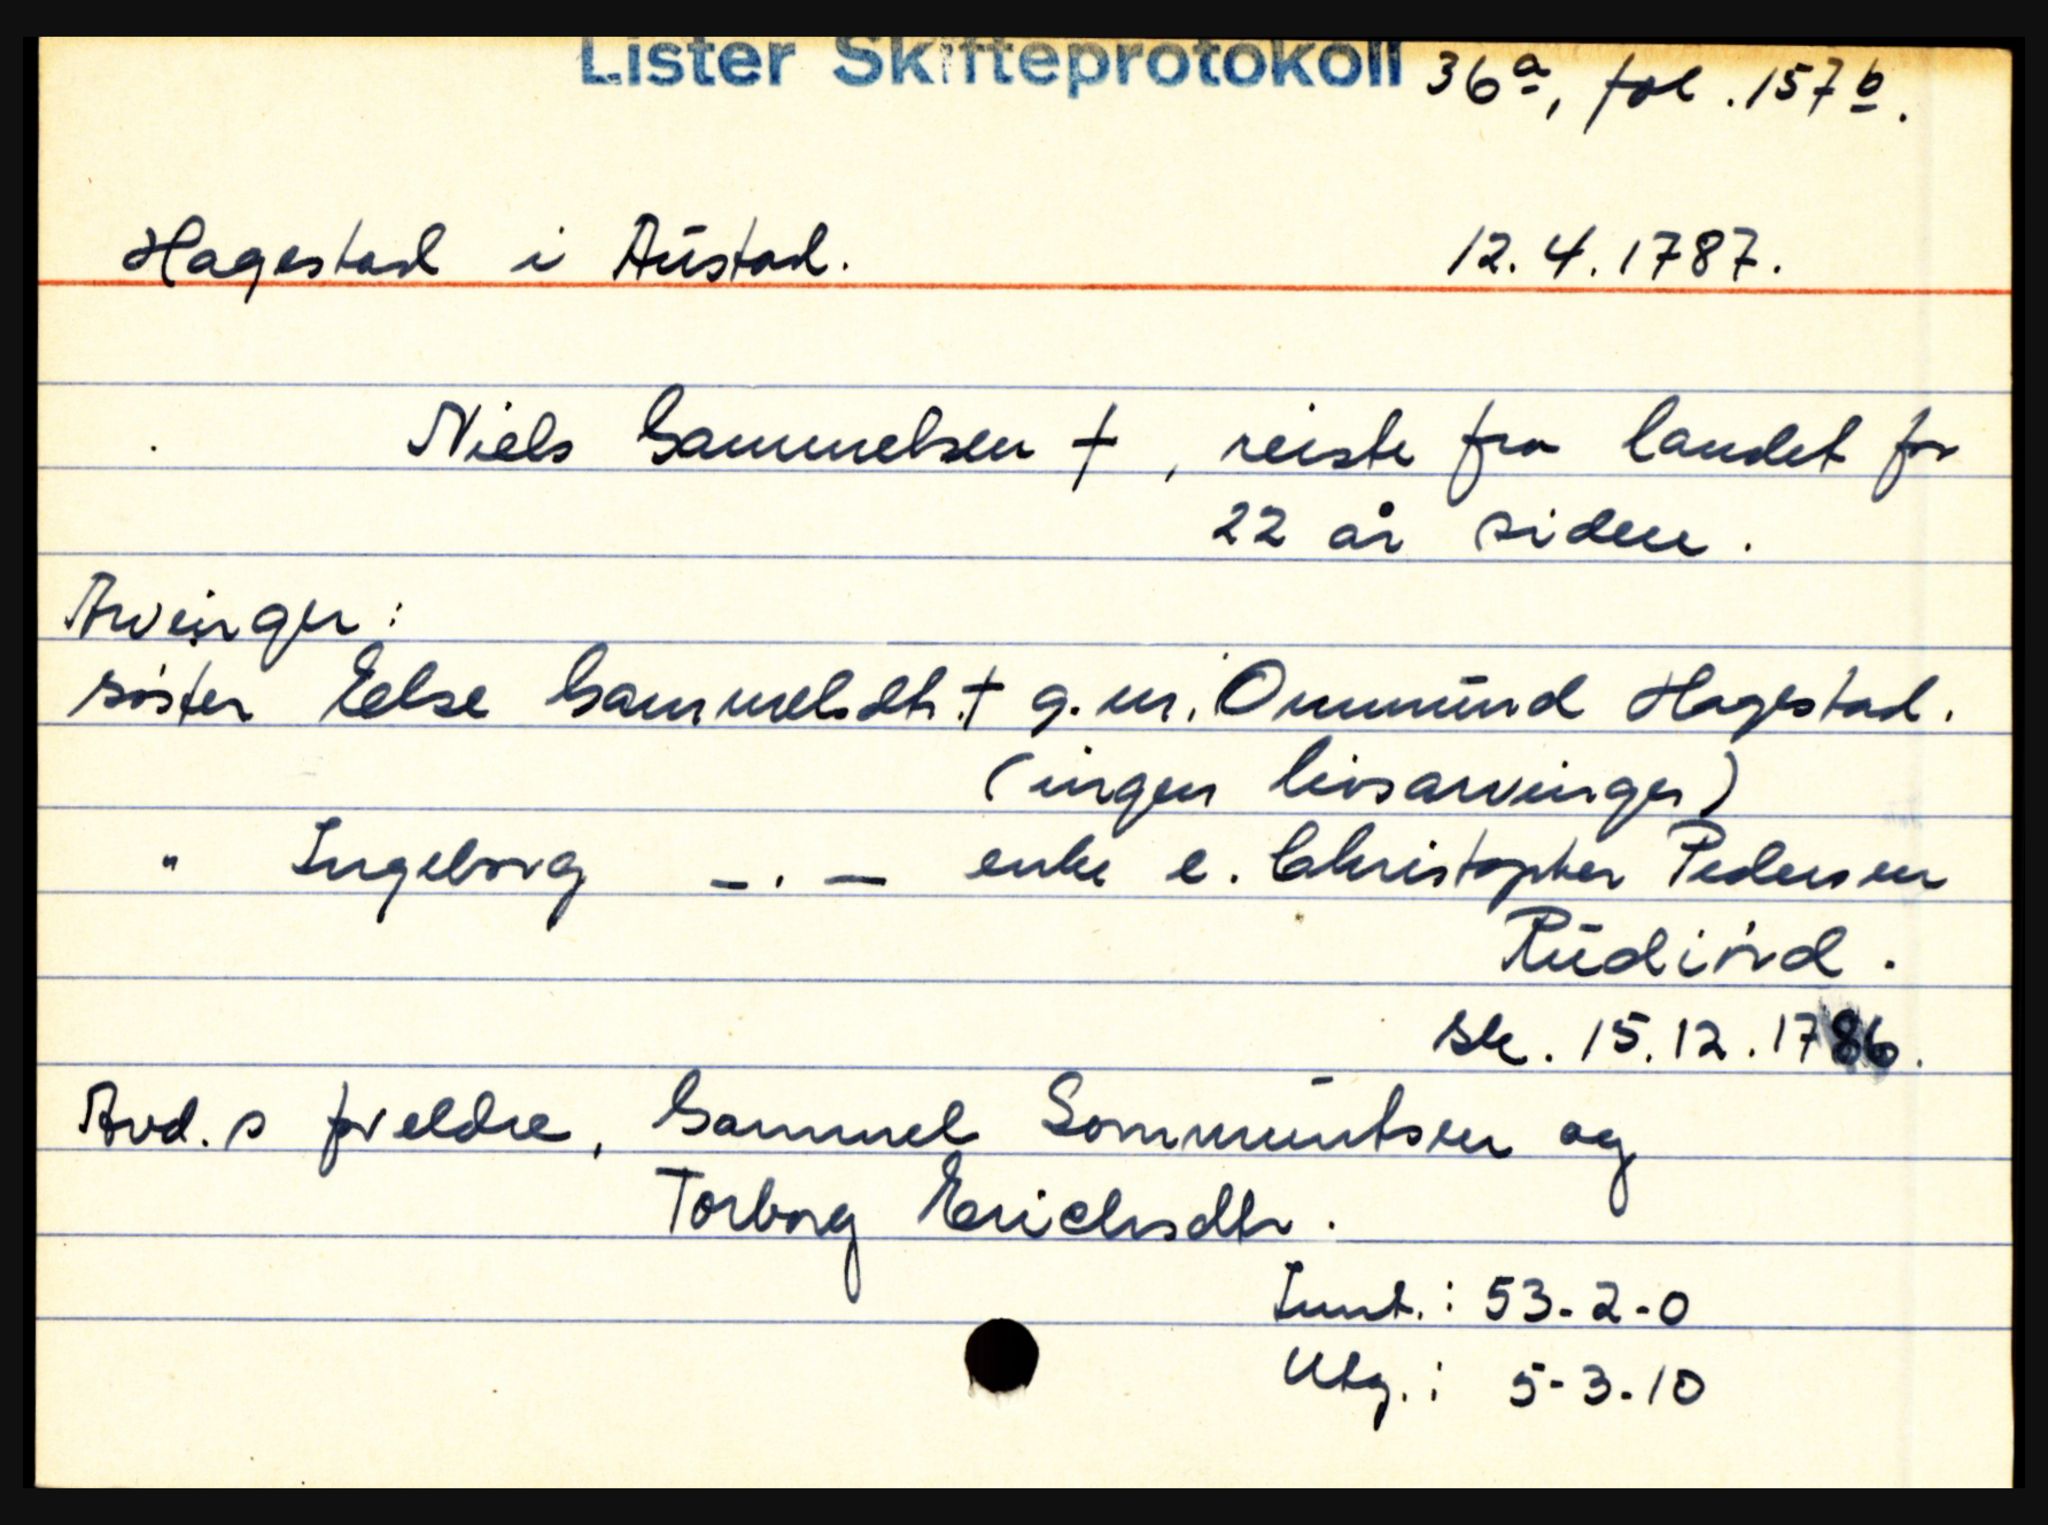 Lister Skifteprotokoll 36a, fol. 157b.
Hagestad i Austad. 12.4.1787.
Niels Sammelsen †, reiste fra landet for
22 år siden.
Arvinger:
søster Eelse Sammelsdtr. † g.m. Ommund Hagestad.
(ingen livsarvinger)
" Ingeborg —.— enke e. Christopher Pedersen
Rudiörd.
sk. 15.12.1786.
Avd. s foreldre, Sammel Sommuntsen og
Torborg Erichsdtr.
Innt.: 53-2-0
Utg.: 5-3-10